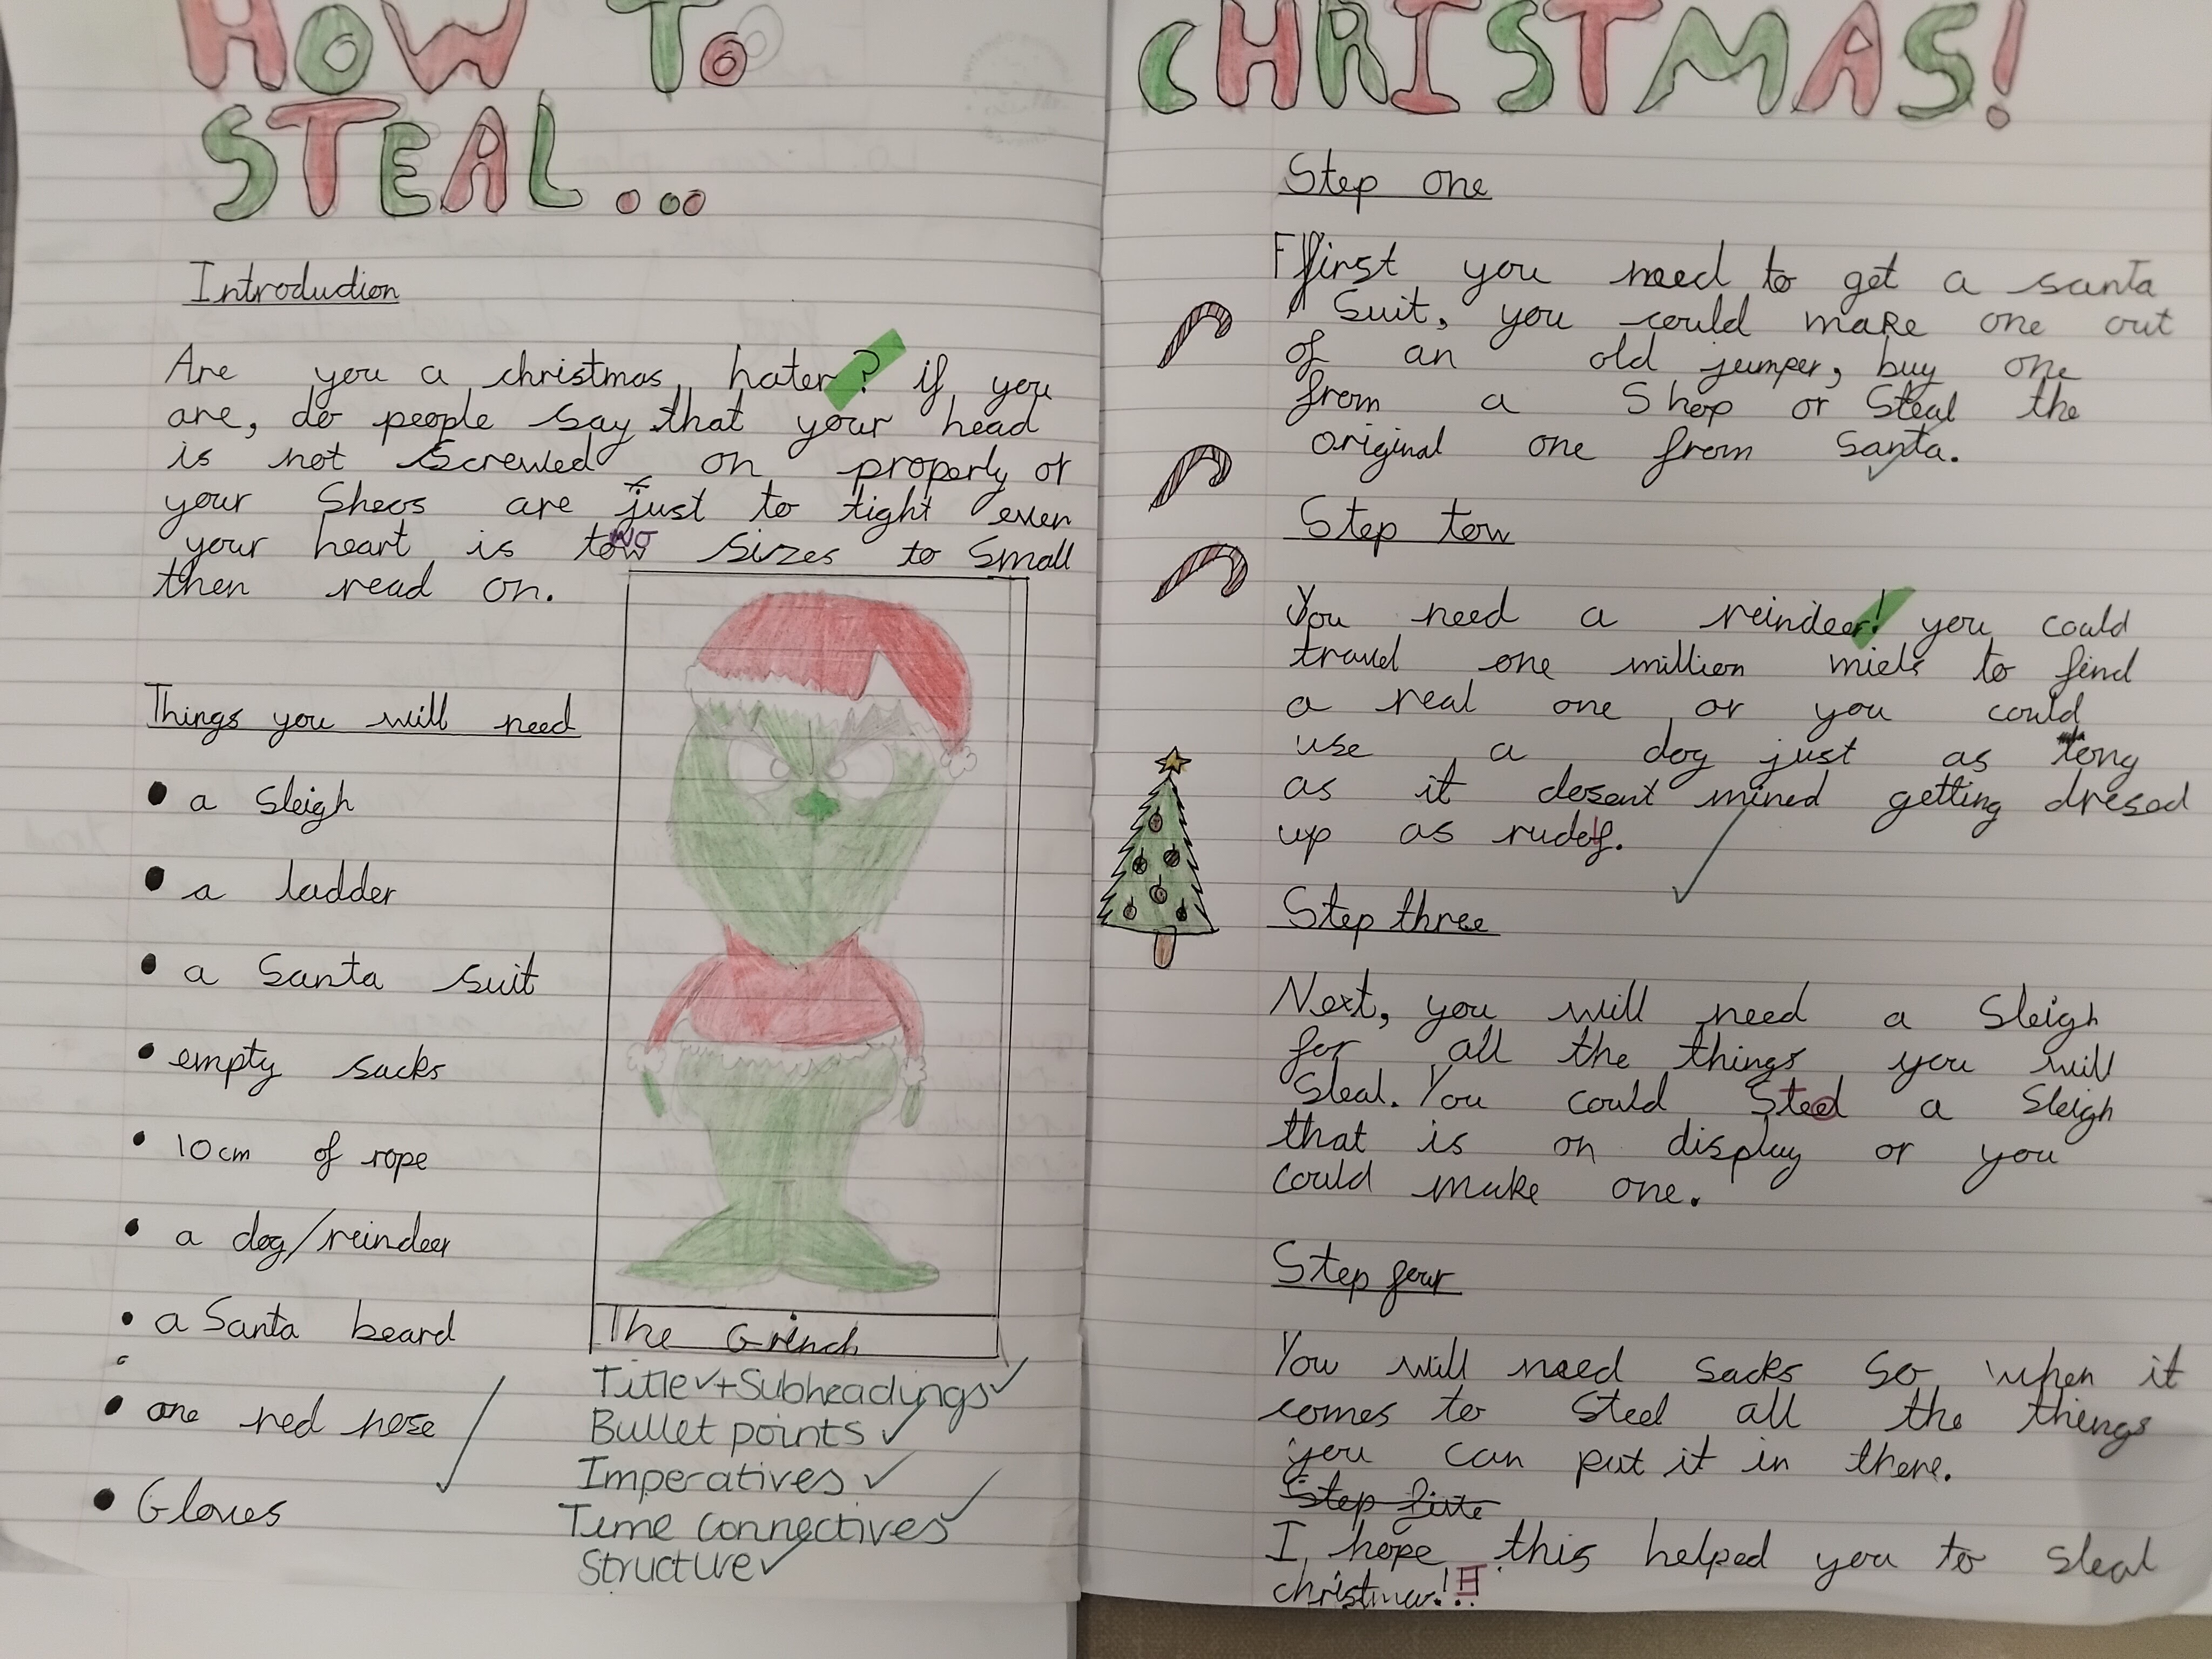 HOW To
STEAL...
Introduction
Are you a christmas hater? if you
are, do people say that your head
is not Screwed on properly or
your Shoos are just to tight even
your heart is two sizes to Small
then read on.
Things you will need
• a Sleigh
• a ladder
• a Santa suit
• empty sacks
• 10cm of rope
• a dog/reindeer
• a Santa beard
• one red nose
• Gloves
The Grinch
Title✓+Subheadings✓
Bullet points ✓
Imperatives ✓
Time connectives ✓
Structure ✓
CHRISTMAS!
Step one
First you need to get a santa
Suit, you could make one out
of an old jumper, buy one
from a Shop or Steal the
original one from Santa.
Step tow
You need a reindeer! you could
travel one million miels to find
a real one or you could
use a dog just as long
as it desent mined getting dresed
up as rudolf.
Step three
Next, you will need a Sleigh
for all the things you will
Steal. You could Steel a Sleigh
that is on display or you
could make one.
Step four
You will need sacks So when it
comes to Steel all the things
you can put it in there.
Step five
I hope this helped you to steal
christmas!!!